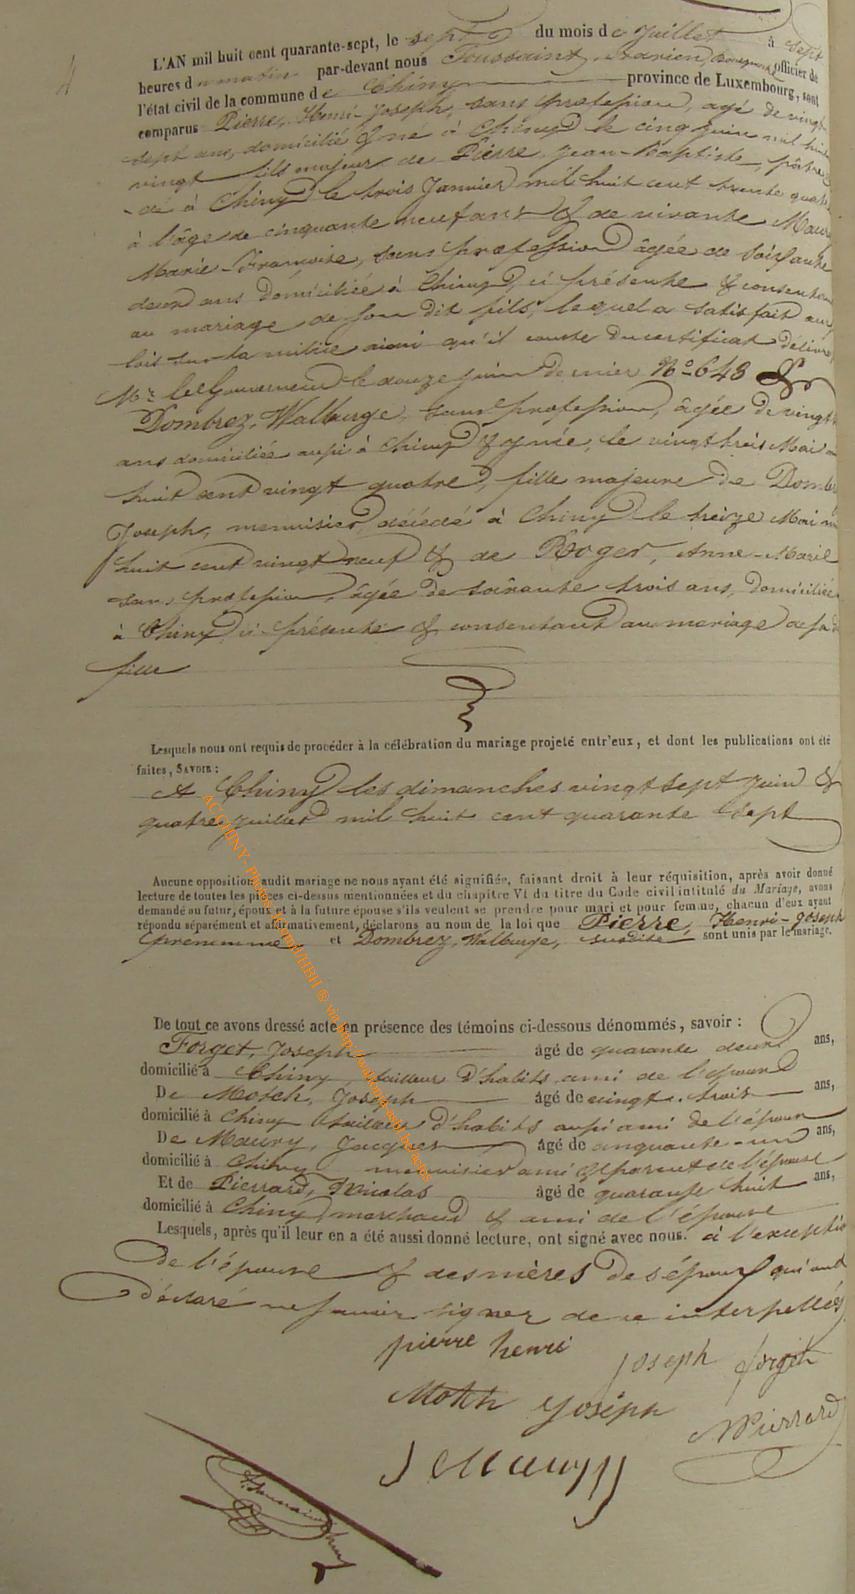 4
L'AN mil huit cent quarante-sept, le sept du mois de Juillet à sept
heures du matin par-devant nous Toussaint, Adrien, Bourgmestre officier de
l'état civil de la commune de Chiny province de Luxembourg, sont
comparus Pierre, Henri-Joseph, sans profession, agé de vingt
sept ans, domicilié & né à Chiny le cinq Juin mil huit
vingt fils majeur de Pierre, Jean-Baptiste, pâtre
dé à Chiny le trois Janvier mil huit cent trente quatre
à l'âge de cinquante neuf ans & de vivante Maury
Marie-Françoise, sans profession âgée de soixante
deux ans domiciliée à Chiny, ci présente & consentant
au mariage de son dit fils, lequel a satisfait aux
lois sur la milice ainsi qu'il conste du certificat délivré
Mr le Gouverneur le douze Juin dernier No 643 &
Dombrez, Walburge, sans profession, âgée de vingt
ans domiciliée aussi à Chiny & y née, le vingt trois Mai
huit cent vingt quatre, fille majeure de Dombrez
Joseph, menuisier, décédé à Chiny le treize Mai mil
huit cent vingt neuf & de Roger, Anne-Marie
sans profession, âgée de soixante trois ans, domiciliée
à Chiny, ci présente & consentant au mariage de sa
fille
Lesquels nous ont requis de procéder à la célébration du mariage projeté entr'eux, et dont les publications ont été
faites, SAVOIR :
A Chiny les dimanches vingt sept Juin &
quatre Juillet mil huit cent quarante sept
Aucune opposition audit mariage ne nous ayant été signifiée, faisant droit à leur réquisition, après avoir donné
lecture de toutes les pièces ci-dessus mentionnées et du chapitre VI du titre du Code civil intitulé du Mariage, avons
demandé au futur, époux et à la future épouse s'ils veulent se prendre pour mari et pour femme, chacun d'eux ayant
répondu séparément et affirmativement, déclarons au nom de la loi que Pierre, Henri-Joseph
prénommé et Dombrez, Walburge, susdite sont unis par le mariage.
De tout ce avons dressé acte en présence des témoins ci-dessous dénommés, savoir :
Forget, Joseph âgé de quarante deux ans,
domicilié à Chiny, tailleur d'habits ami de l'époux
De Motch, Joseph âgé de vingt-trois ans,
domicilié à Chiny tailleur d'habits aussi ami de l'époux
De Maury, Jacques âgé de cinquante-un ans,
domicilié à Chiny menuisier ami & parent de l'épouse
Et de Pierrard, Nicolas âgé de quarante huit ans,
domicilié à Chiny, marchand & ami de l'épouse
Lesquels, après qu'il leur en a été aussi donné lecture, ont signé avec nous. à l'exception
de l'épouse & des mères des époux qui ont
déclaré ne savoir signer de ce interpellées
pierre henri
joseph forget
Motch joseph
N Pierrard
J Maury